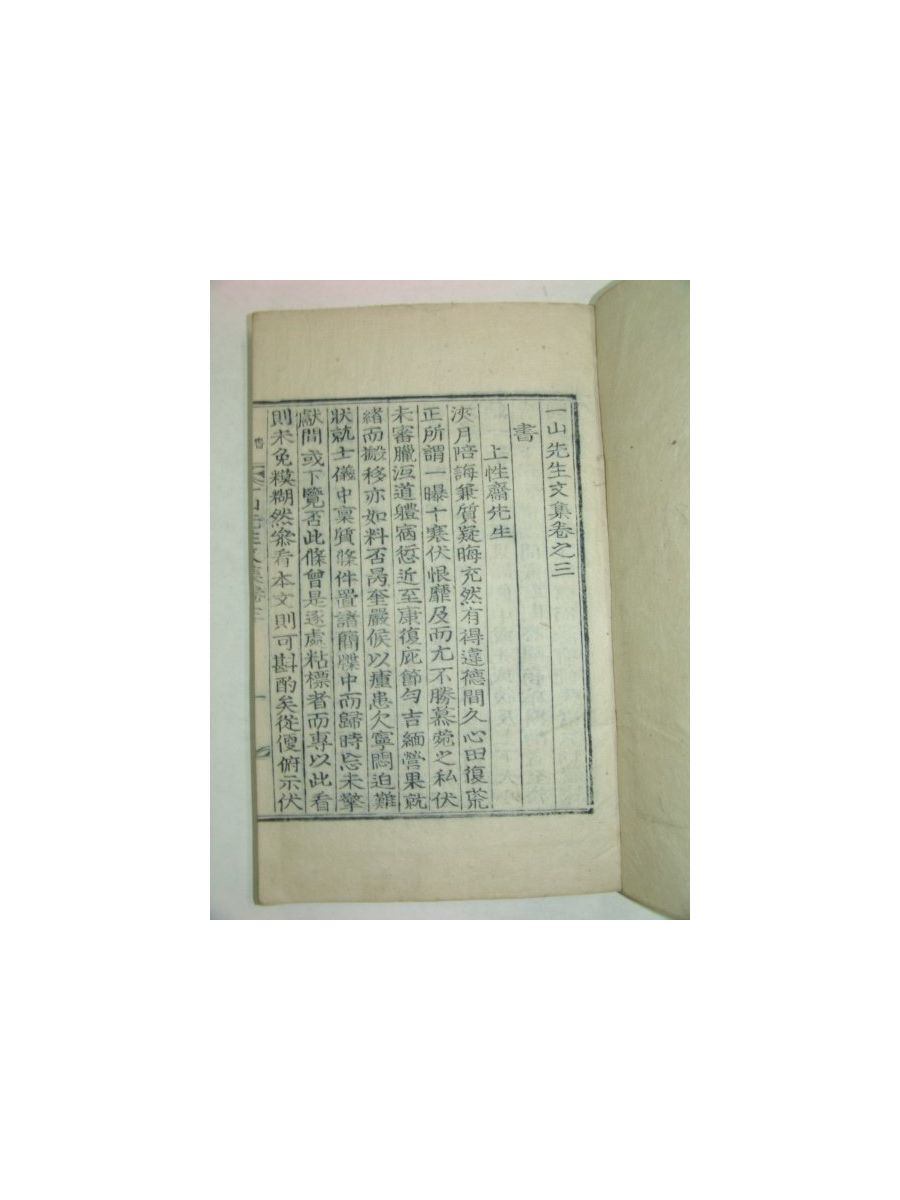 一山先生文集卷之三
書
上性齋先生
浹月陪誨兼質疑晦充然有得違德間久心田復荒
正所謂一曝十寒伏恨靡及而尤不勝慕菀之私伏
未審臘沍道軆病愆近至康復庇節勻吉緬營果就
緖而搬移亦如料否昺奎嚴候以瘇患欠寧悶迫難
狀就士儀中稟質條件置諸簡牒中而歸時忘未擎
獻間或下覽否此條曾是逐處粘標者而專以此看
則未免糢糊然參看本文則可斟酌矣從便俯示伏
書 一山先生文集卷三 一